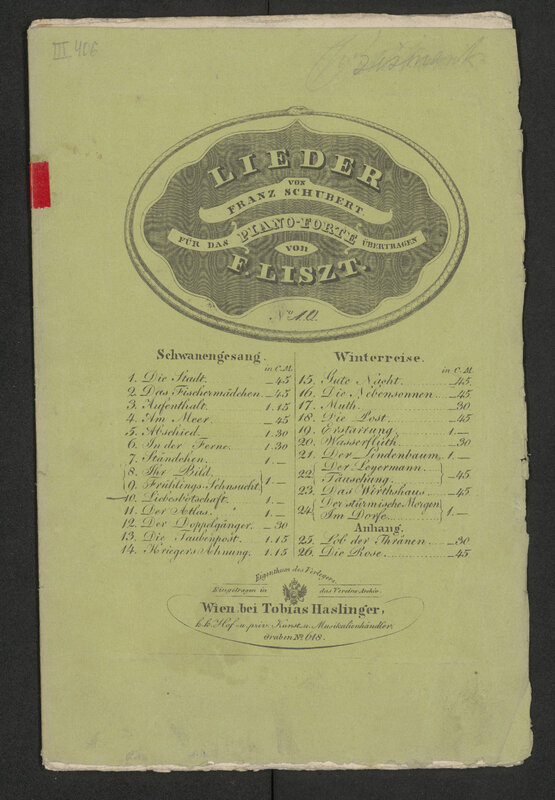 III 406
LIEDER
VON
FRANZ SCHUBERT
FÜR DAS PIANO-FORTE ÜBERTRAGEN
von
F. LISZT.
No. 10.
Schwanengesang.
in C.M.
1. Die Stadt. _45
2. Das Fischermädchen _45
3. Aufenthalt. 1.15
4. Am Meer. _45
5. Abschied. 1.30
6. In der Ferne. 1.30
7. Ständchen. 1._
8. Ihr Bild.
9. Frühlings-Sehnsucht 1._
10. Liebesbotschaft. 1._
11. Der Atlas. 1._
12. Der Doppelgänger. _30
13. Die Taubenpost. 1.15
14. Kriegers Ahnung. 1.15
Winterreise.
in C.M.
15. Gute Nacht. _45
16. Die Nebensonnen _45
17. Muth. _30
18. Die Post. _45
19. Erstarrung. 1._
20. Wasserfluth. _30
21. Der Lindenbaum 1._
22. Der Leyermann.
Täuschung. _45
23. Das Wirthshaus. _45
24. Der stürmische Morgen
Im Dorfe. 1._
Anhang.
25. Lob der Thränen. _30
26. Die Rose. _45
Eigenthum des Verlegers.
Eingetragen in das Vereins-Archiv.
Wien, bei Tobias Haslinger,
k.k. Hof- u. priv. Kunst- u. Musikalienhändler.
Graben No. 618.